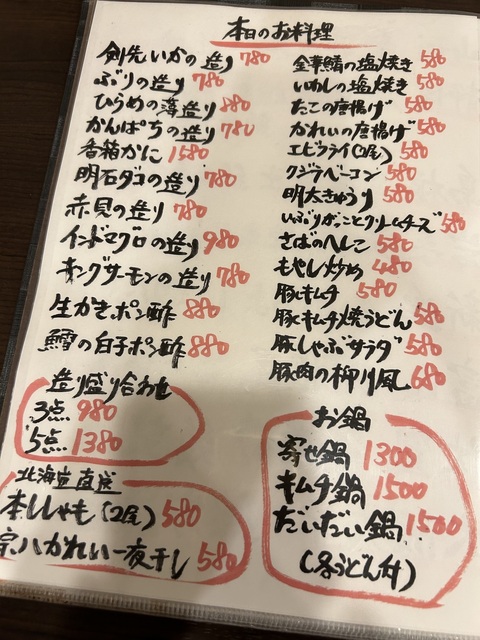 本日のお料理
剣先いかの造り 780
ぶりの造り 780
ひらめの薄造り 880
かんぱちの造り 780
香箱がに 1580
明石ダコの造り 780
赤貝の造り 780
インドマグロの造り 980
キングサーモンの造り 780
生がきポン酢 880
鱈の白子ポン酢 880
造り盛り合わせ
3点 980
5点 1380
北海道直送
本ししゃも(2尾) 580
宗八がれい一夜干し 580
金華鯖の塩焼き 580
いわしの塩焼き 580
たこの唐揚げ 580
かれいの唐揚げ 580
エビフライ(2尾) 580
クジラベーコン 580
明太きゅうり 580
いぶりがっことクリームチーズ 580
さばのへしこ 580
もやし炒め 480
豚キムチ 580
豚キムチ焼うどん 580
豚しゃぶサラダ 580
豚肉の柳川風 680
お鍋
寄せ鍋 1300
キムチ鍋 1500
だいだい鍋 1500
(各うどん付)